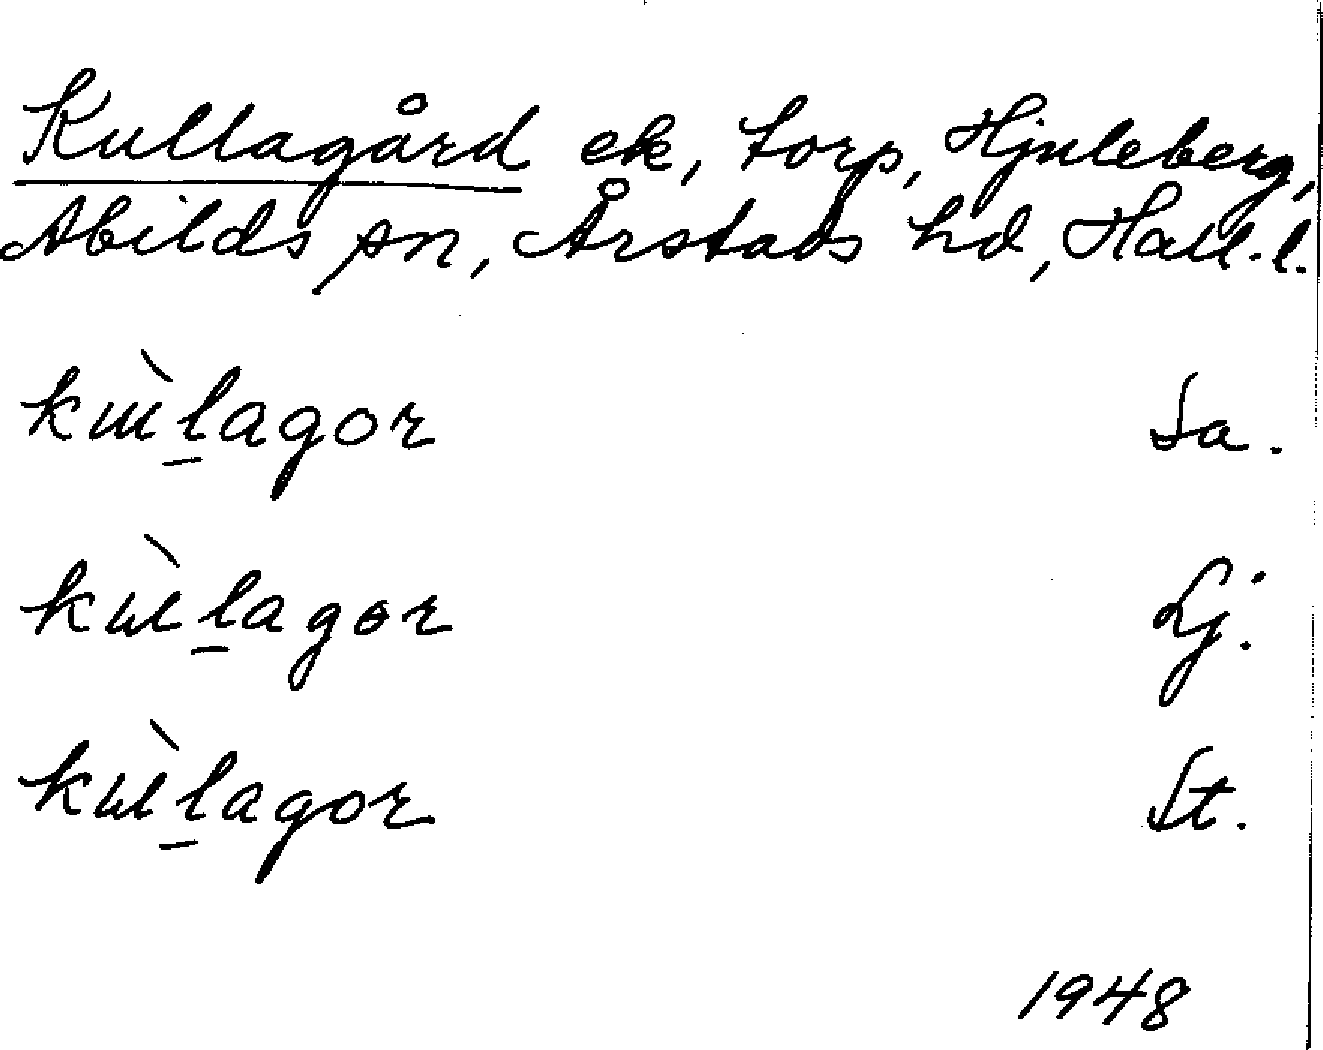 Kullagård ek, torp, Hjuleberg,
Abilds sn, Årstads hd, Hall. l.
kɯ̀l̠agor Sa.
kɯ̀l̠agor Lj.
kɯ̀l̠agor St.
1948